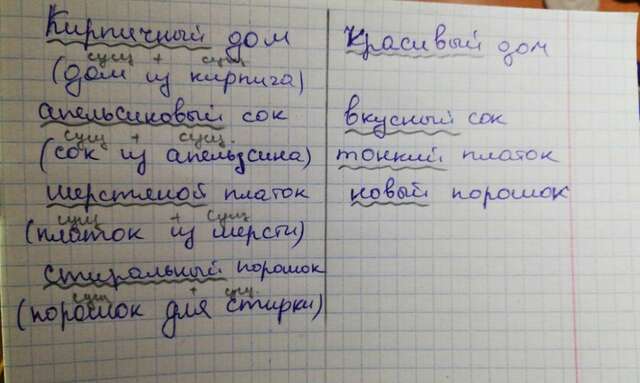 Кирпичный дом
сущ + сущ
(дом из кирпича)
апельсиновый сок
сущ + сущ.
(сок из апельсина)
шерстяной платок
сущ + сущ
(платок из шерсти)
стиральный порошок
сущ + сущ.
(порошок для стирки)
Красивый дом
вкусный сок
тонкий платок
новый порошок